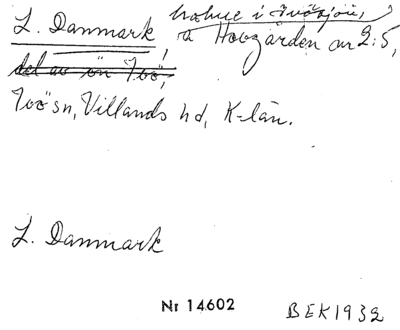 holme i Ivösjön,
L. Danmark, å Hovgården nr 2:5,
del av ön Ivö,
Ivö sn, Villands hd, K-län.
L. Danmark
Nr 14602
BEK1932